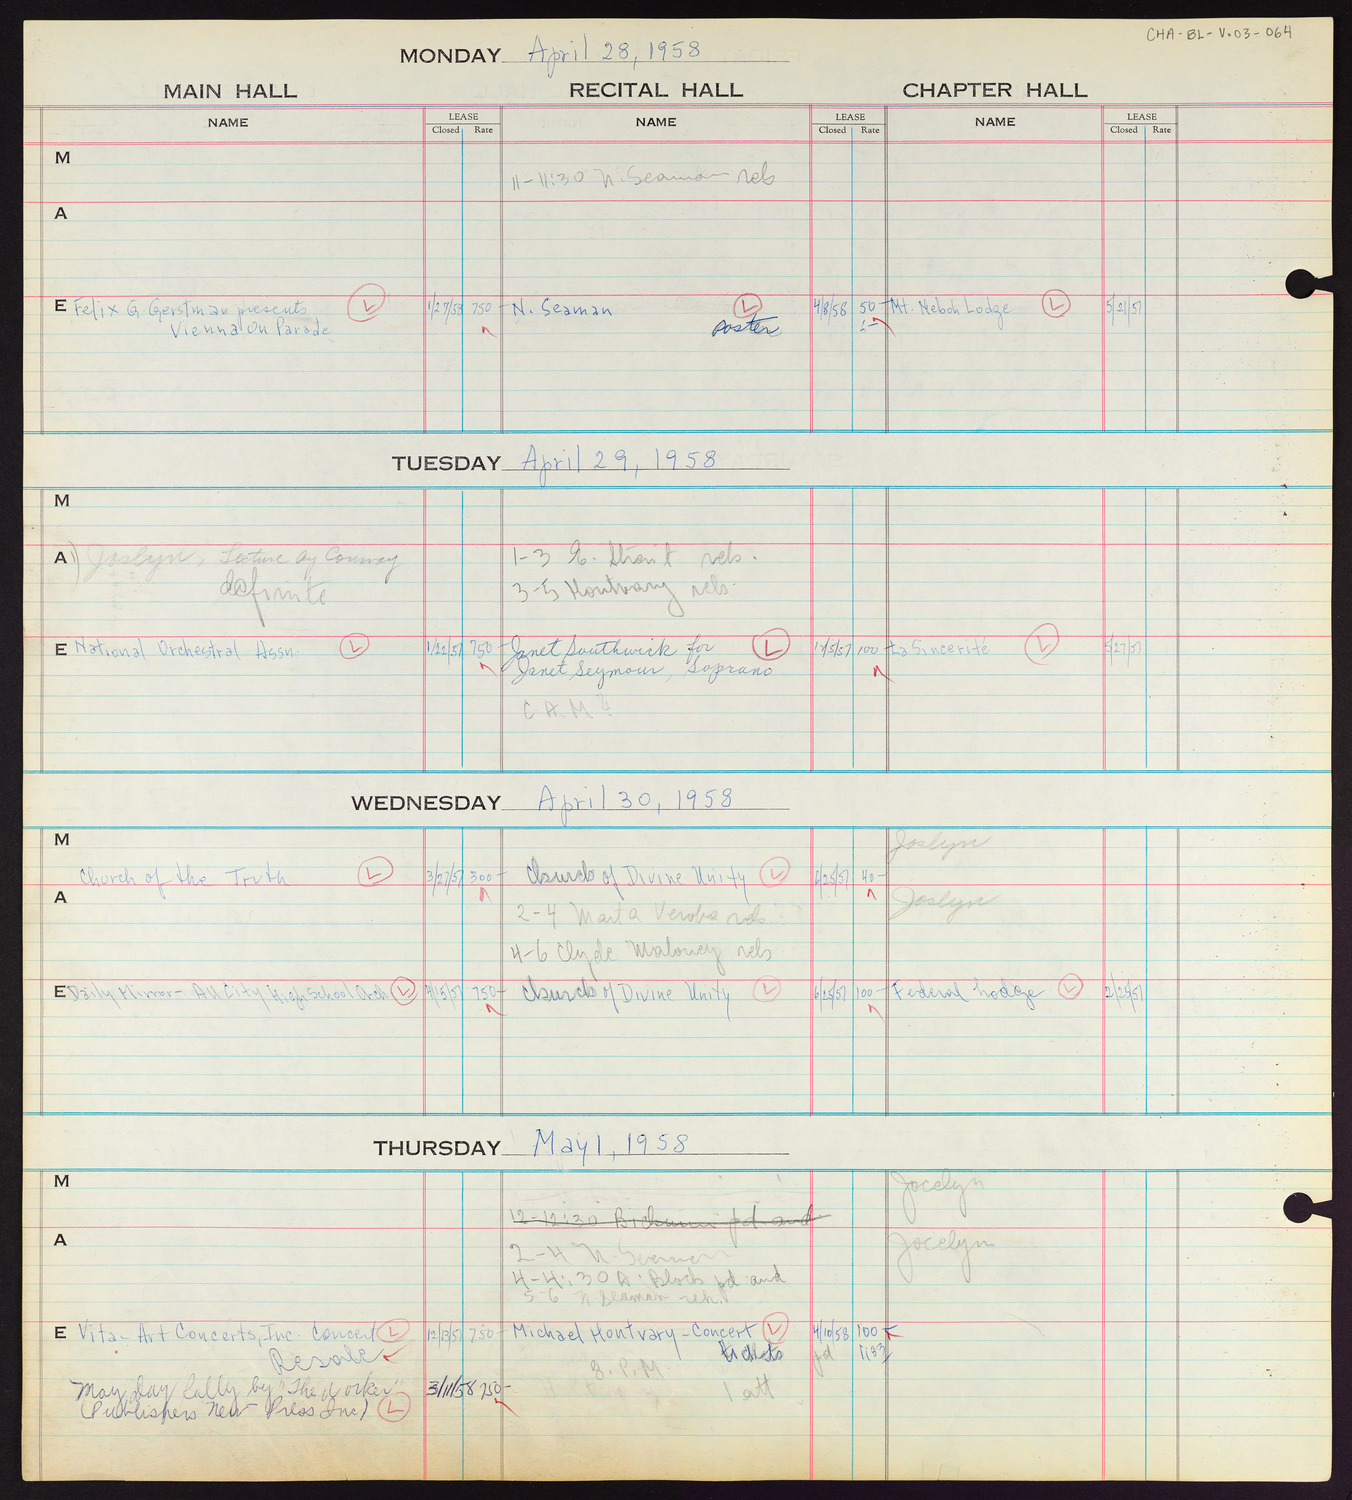 CHA-BL-V.03-064
MONDAY April 28, 1958
MAIN HALL RECITAL HALL CHAPTER HALL
NAME LEASE Closed Rate NAME LEASE Closed Rate NAME LEASE Closed Rate
M
11-11:30 N. Seaman rels
A
E Felix G. Gerstman presents L 1/27/58 750- N. Seaman L 4/8/58 50- Mt. Neboh Lodge L 5/21/57
Vienna On Parade poster
TUESDAY April 29, 1958
M
A Joslyn, Lecture by Conway 1-3 E. Strait rels.
definite 3-5 Hontvary rels.
E National Orchestral Assn. L 1/22/57 750- Janet Southwick for L 12/5/57 100- La Sincerité L 5/27/57
Janet Seymour, Soprano
C.A.M?
WEDNESDAY April 30, 1958
M Joslyn
Church of the Truth L 3/27/57 300- Church of Divine Unity L 6/25/57 40-
A Joslyn
2-4 Marta rels
4-6 Clyde Maloney rels
E Daily Mirror- All City High School Orch L 4/15/57 750- Church of Divine Unity L 6/25/57 100- Federal Lodge L 2/25/57
THURSDAY May 1, 1958
M Jocelyn
12-12:30 pd and
A Jocelyn
2-4 N. Seaman
4-4:30 A. Block pd and
5-6 N Seaman reh.
E Vita-Art Concerts, Inc. Concert L 12/13/57 750- Michael Hontvary-Concert L 4/10/58 100-
Resale tickets pd
8. P.M.
May day Rally by "The Worker" 3/11/58 750- 1 att
(Publishers New Press Inc) L